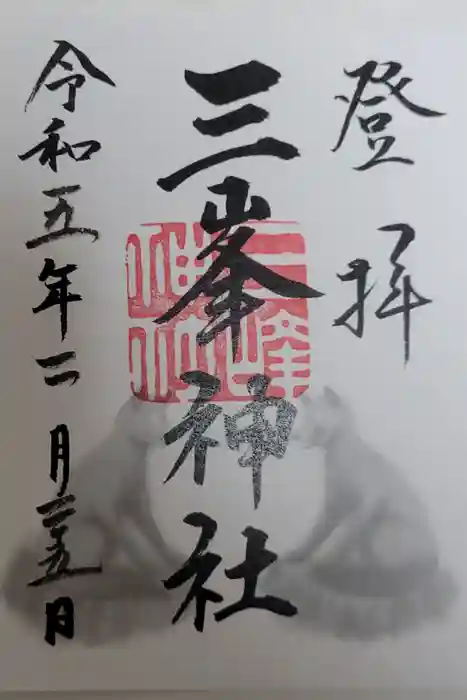 登拝
三峯神社
令和五年二月二十五日